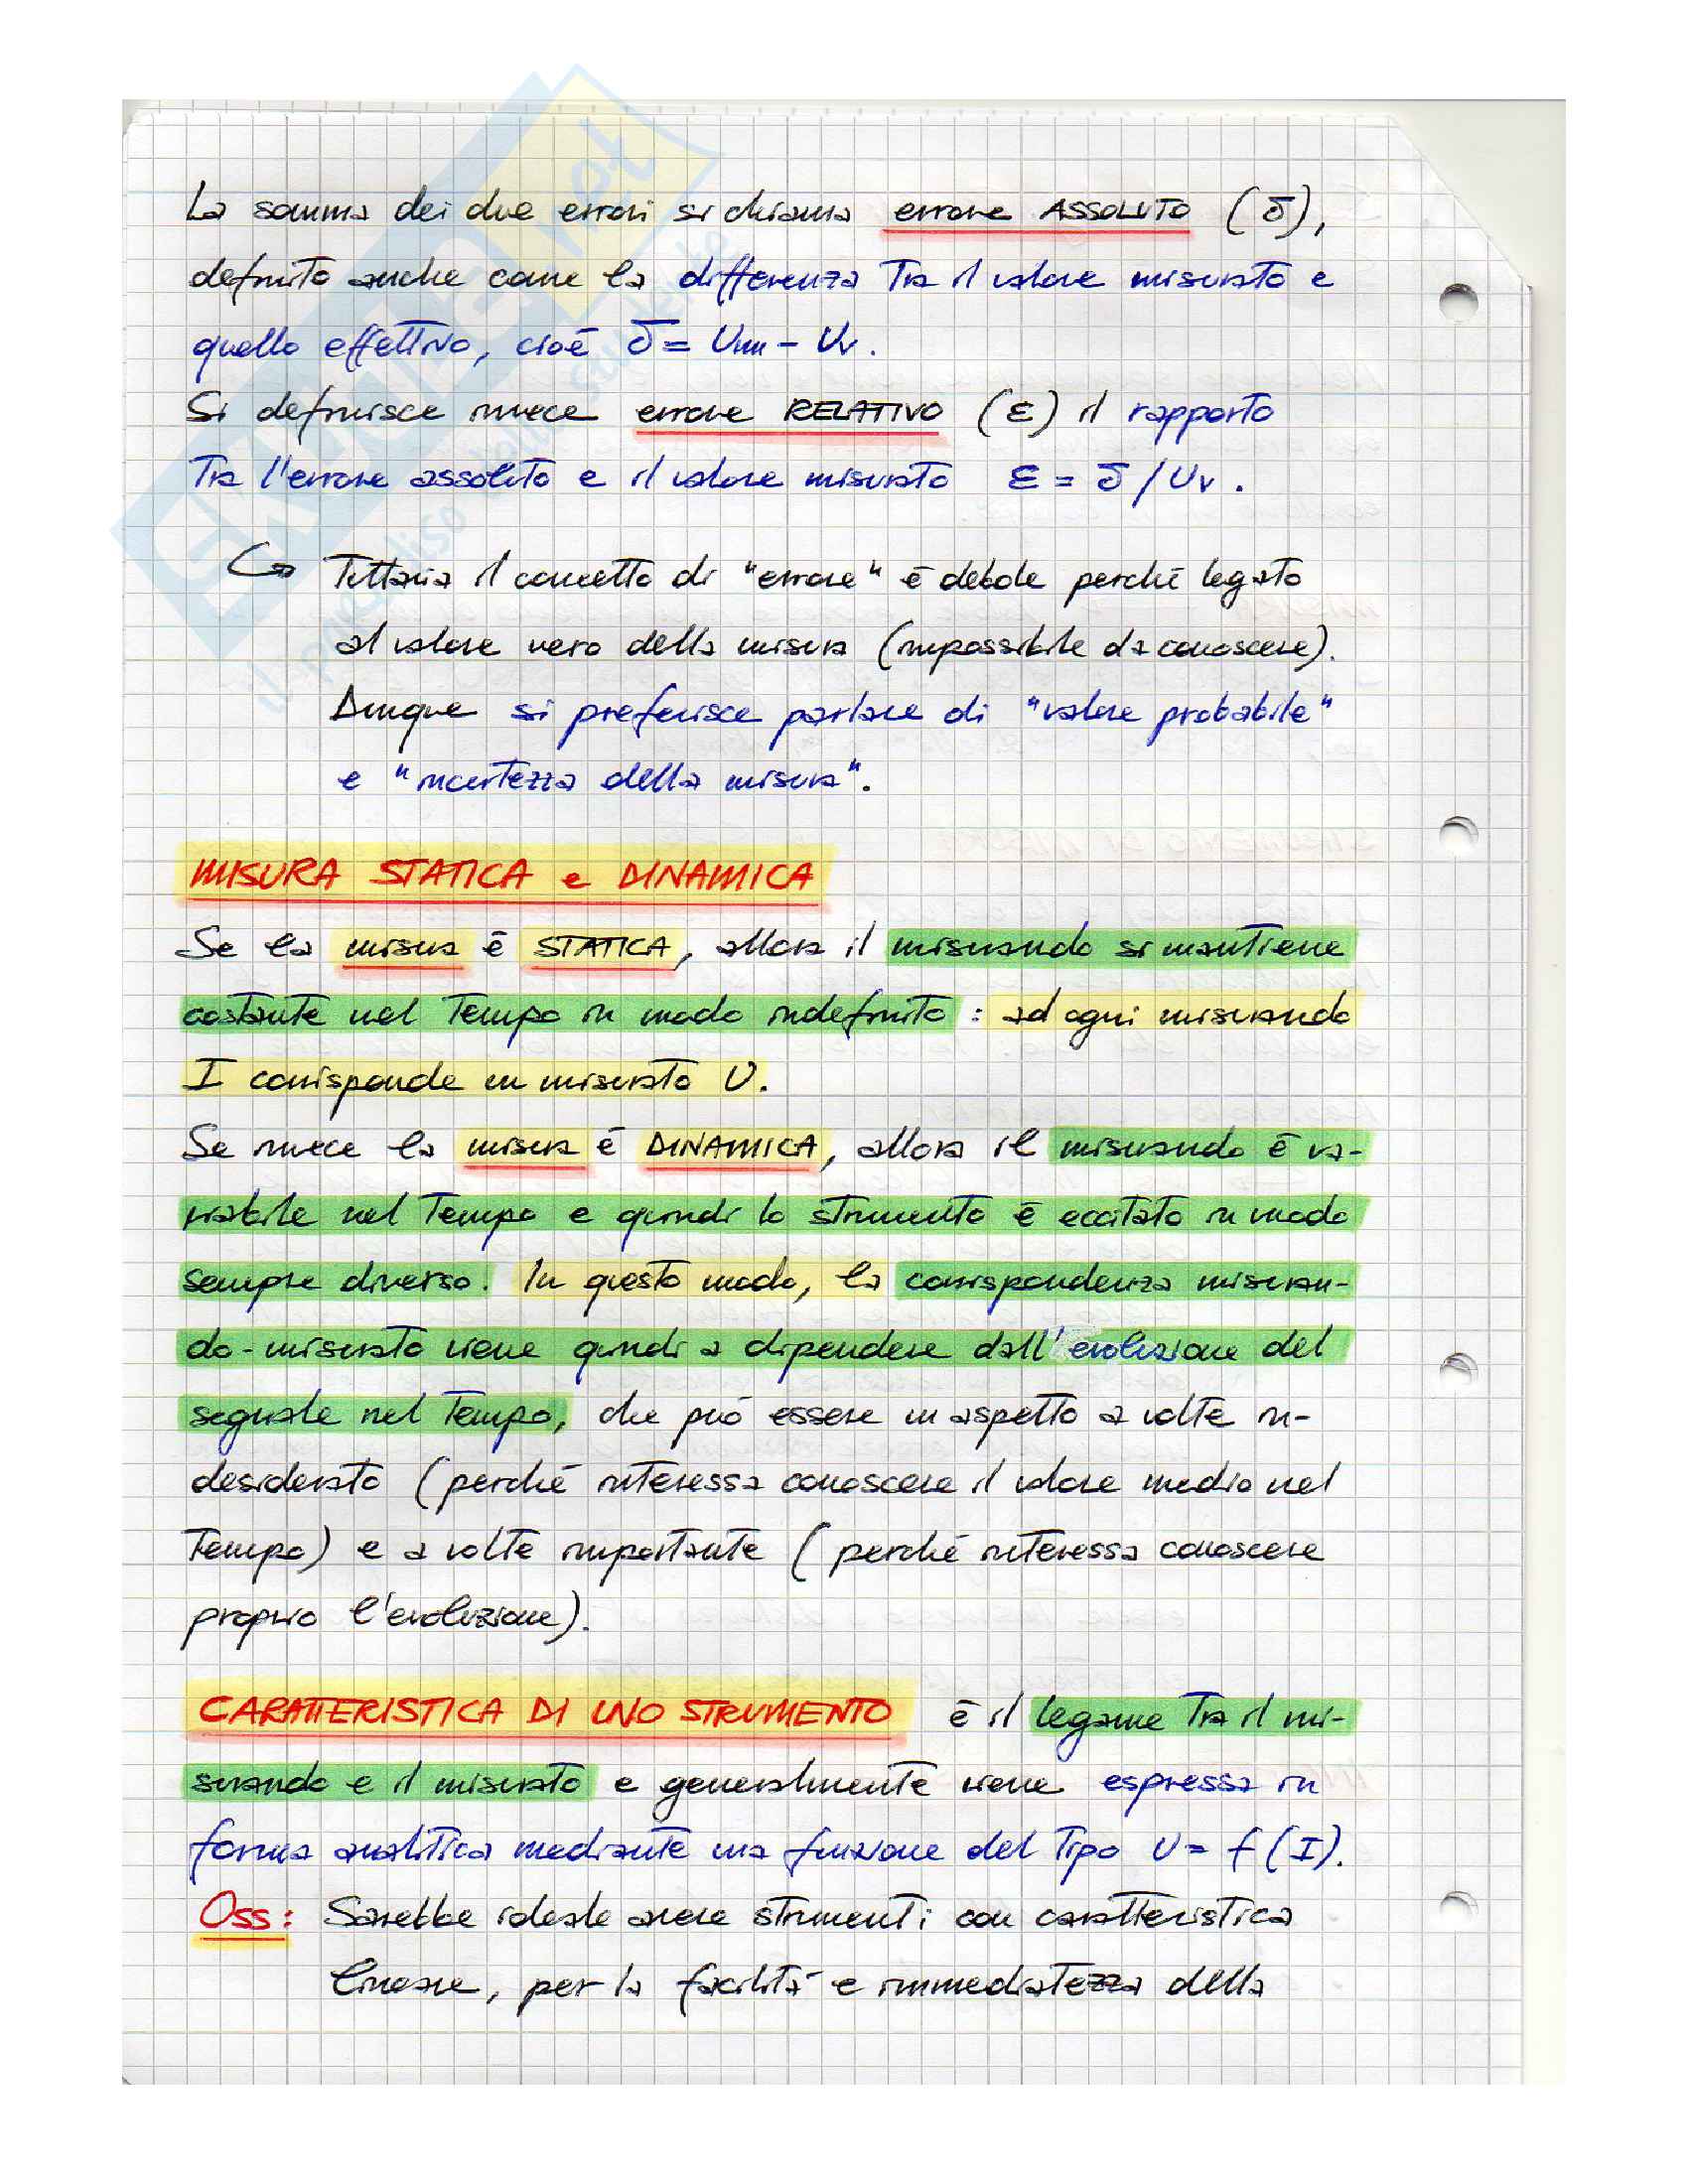 La somma dei due errori si chiama errore ASSOLUTO (δ),
definito anche come la differenza tra il valore misurato e
quello effettivo, cioè δ = Um - Uv.
Si definisce invece errore RELATIVO (ε) il rapporto
tra l'errore assoluto e il valore misurato ε = δ/Uv.
↪ Tuttavia il concetto di "errore" è debole perché legato
al valore vero della misura (impossibile da conoscere).
Dunque si preferisce parlare di "valore probabile"
e "incertezza della misura".
MISURA STATICA e DINAMICA
Se la misura è STATICA, allora il misurando si mantiene
costante nel tempo in modo indefinito: ad ogni misurando
I corrisponde un misurato U.
Se invece la misura è DINAMICA, allora il misurando è va-
riabile nel tempo e quindi lo strumento è eccitato in modo
sempre diverso. In questo modo, la corrispondenza misuran-
do-misurato viene quindi a dipendere dall'evoluzione del
segnale nel tempo, che può essere un aspetto a volte in-
desiderato (perché interessa conoscere il valore medio nel
tempo) e a volte importante (perché interessa conoscere
proprio l'evoluzione).
CARATTERISTICA DI UNO STRUMENTO è il legame tra il mi-
surando e il misurato e generalmente viene espressa in
forma analitica mediante una funzione del tipo U = f(I).
Oss: Sarebbe ideale avere strumenti con caratteristica
lineare, per la facilità e immediatezza della